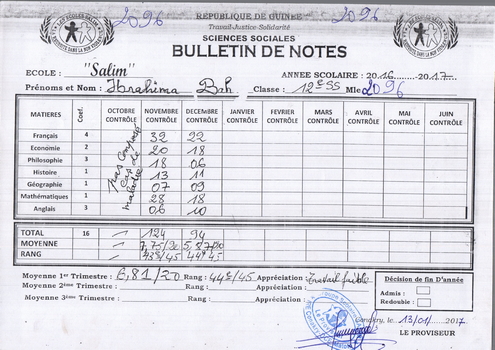 2096
2096
REPUBLIQUE DE GUINEE
Travail-Justice-Solidarité
SCIENCES SOCIALES
BULLETIN DE NOTES
ECOLE : "Salim" ANNEE SCOLAIRE : 2016......-2017....
Prénoms et Nom : Ibrahima Bah Classe : 12e SS Mle 2096
MATIERES Coef. OCTOBRE CONTRÔLE NOVEMBRE CONTRÔLE DECEMBRE CONTRÔLE JANVIER CONTRÔLE FEVRIER CONTRÔLE MARS CONTRÔLE AVRIL CONTRÔLE MAI CONTRÔLE JUIN CONTRÔLE
Français 4 32 22
Economie 2 20 18
Philosophie 3 18 06
Histoire 1 13 11
Géographie 1 07 09
Mathématiques 1 28 18
Anglais 3 06 10
pas composé
cas de
maladie
TOTAL 16 124 94
MOYENNE 7,75/20 5,87/20
RANG 43e/45 44e/45
Moyenne 1er Trimestre : 6,81/20 Rang : 44e/45 Appréciation : Travail faible
Moyenne 2ème Trimestre : Rang : Appréciation :
Moyenne 3ème Trimestre : Rang : Appréciation :
Décision de fin D'année
Admis :
Redouble :
Conakry, le 13/01/ 2017
LE PROVISEUR